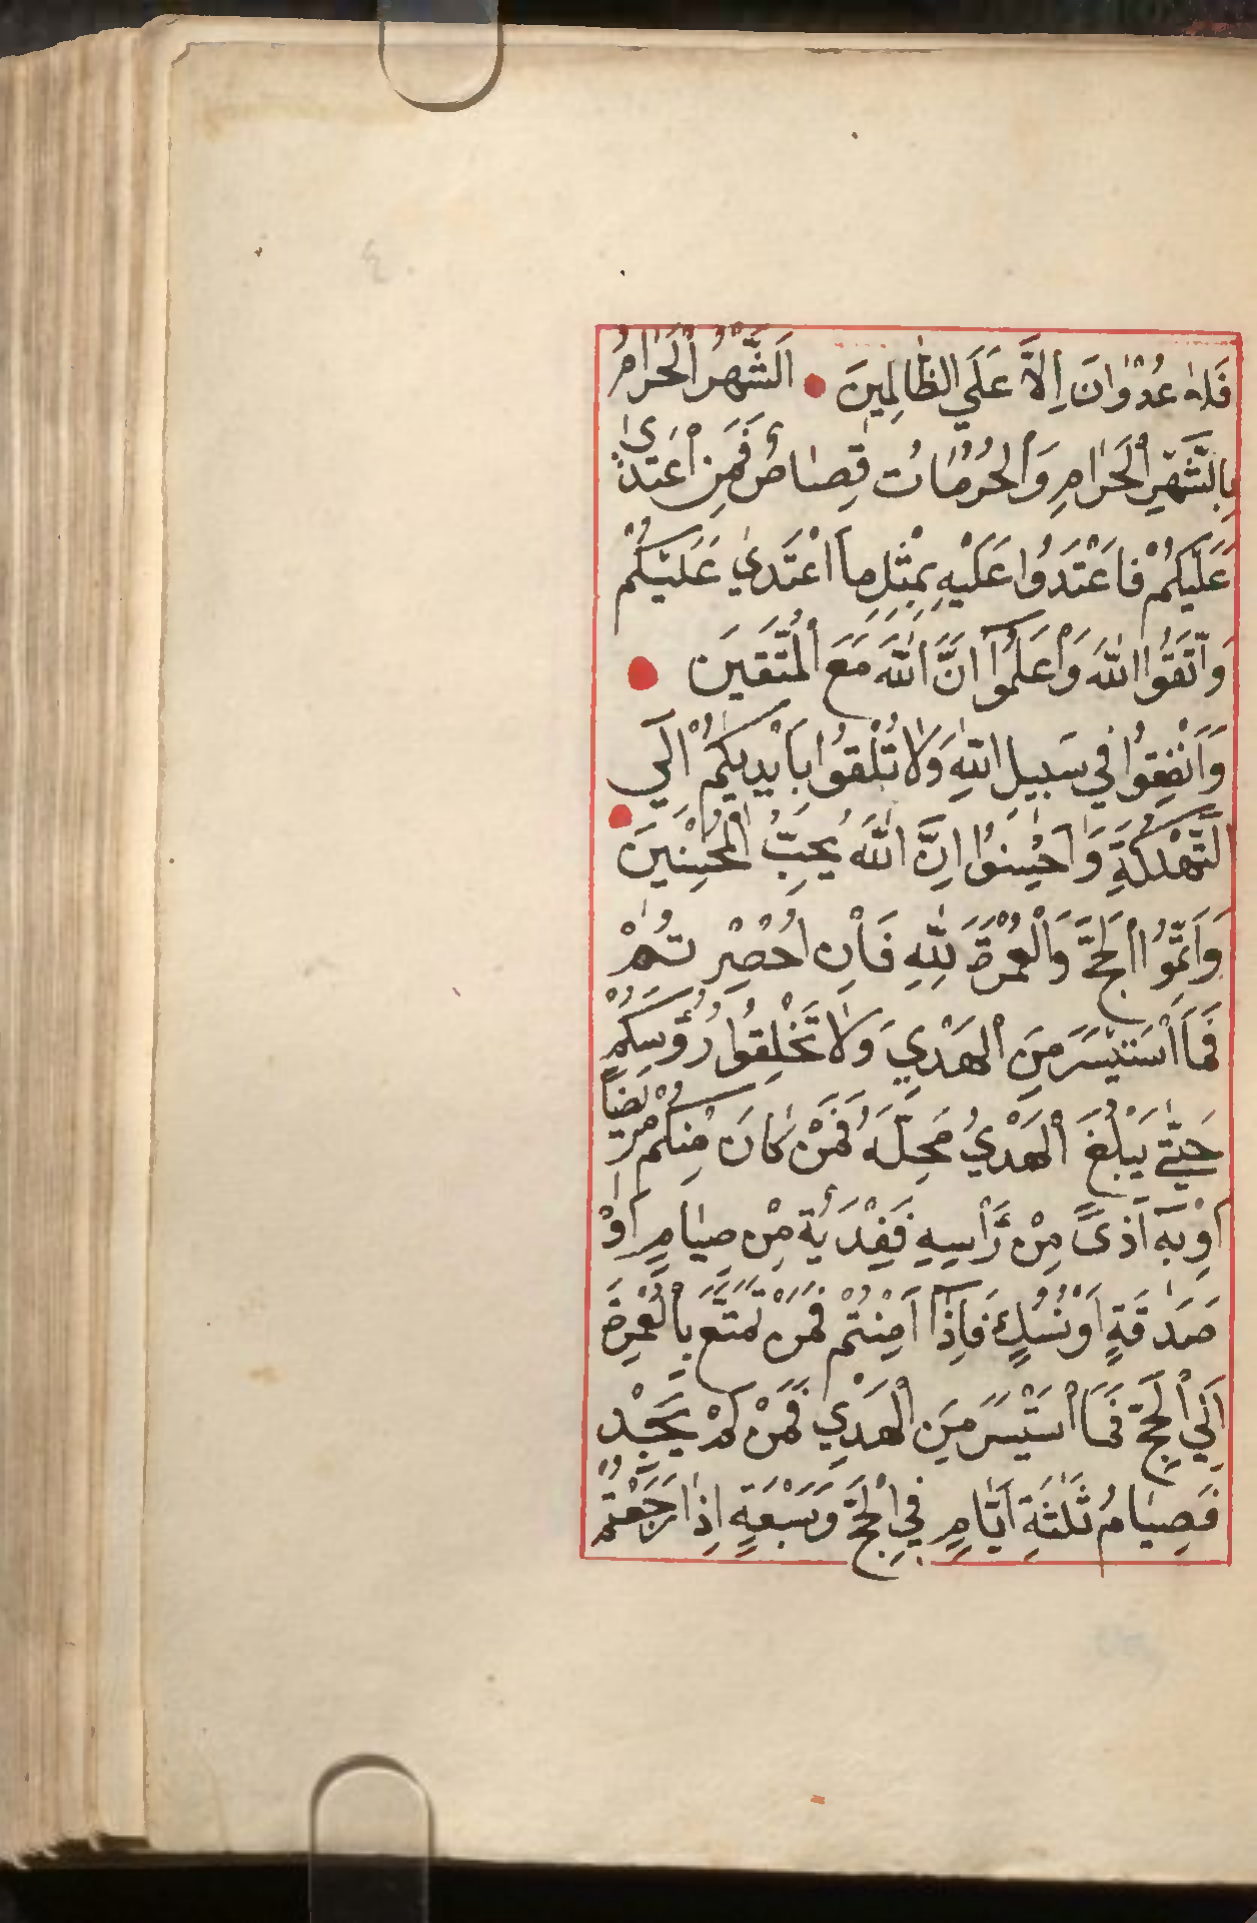 فَلَا عُدْوٰانَ اِلَّا عَلَي الظّٰالِمِينَ اَلشَّهْرُ الْحَرٰامُ
بِالشَّهْرِ الْحَرٰامِ وَالْحُرُمٰاتُ قِصٰاصٌ فَمَنِ اعْتَدٰى
عَلَيْكُمْ فَاعْتَدُوا عَلَيْهِ بِمِثْلِ مَا اعْتَدٰي عَلَيْكُمْ
وَاتَّقُوا اللّٰهَ وَاعْلَمُوٓا اَنَّ اللّٰهَ مَعَ الْمُتَّقِينَ
وَاَنْفِقُوا فِي سَبِيلِ اللّٰهِ وَلَا تُلْقُوا بِاَيْدِيكُمْ اِلَي
التَّهْلُكَةِ وَاَحْسِنُوا اِنَّ اللّٰهَ يُحِبُّ الْمُحْسِنِينَ
وَاَتِمُّوا الْحَجَّ وَالْعُمْرَةَ لِلّٰهِ فَاِنْ اُحْصِرْتُمْ
فَمَا اسْتَيْسَرَ مِنَ الْهَدْيِ وَلَا تَحْلِقُوا رُؤُسَكُمْ
حَتّٰي يَبْلُغَ الْهَدْيُ مَحِلَّهُ فَمَنْ كَانَ مِنْكُمْ مَرِيضًا
اَوْ بِهٓ اَذًى مِنْ رَأْسِهِ فَفِدْيَةٌ مِنْ صِيٰامٍ اَوْ
صَدَقَةٍ اَوْ نُسُكٍ فَاِذٰٓا اَمِنْتُمْ فَمَنْ تَمَتَّعَ بِالْعُمْرَةِ
اِلَي الْحَجِّ فَمَا اسْتَيْسَرَ مِنَ الْهَدْيِ فَمَنْ لَمْ يَجِدْ
فَصِيٰامُ ثَلٰثَةِ اَيّٰامٍ فِي الْحَجِّ وَسَبْعَةٍ اِذٰا رَجَعْتُمْ